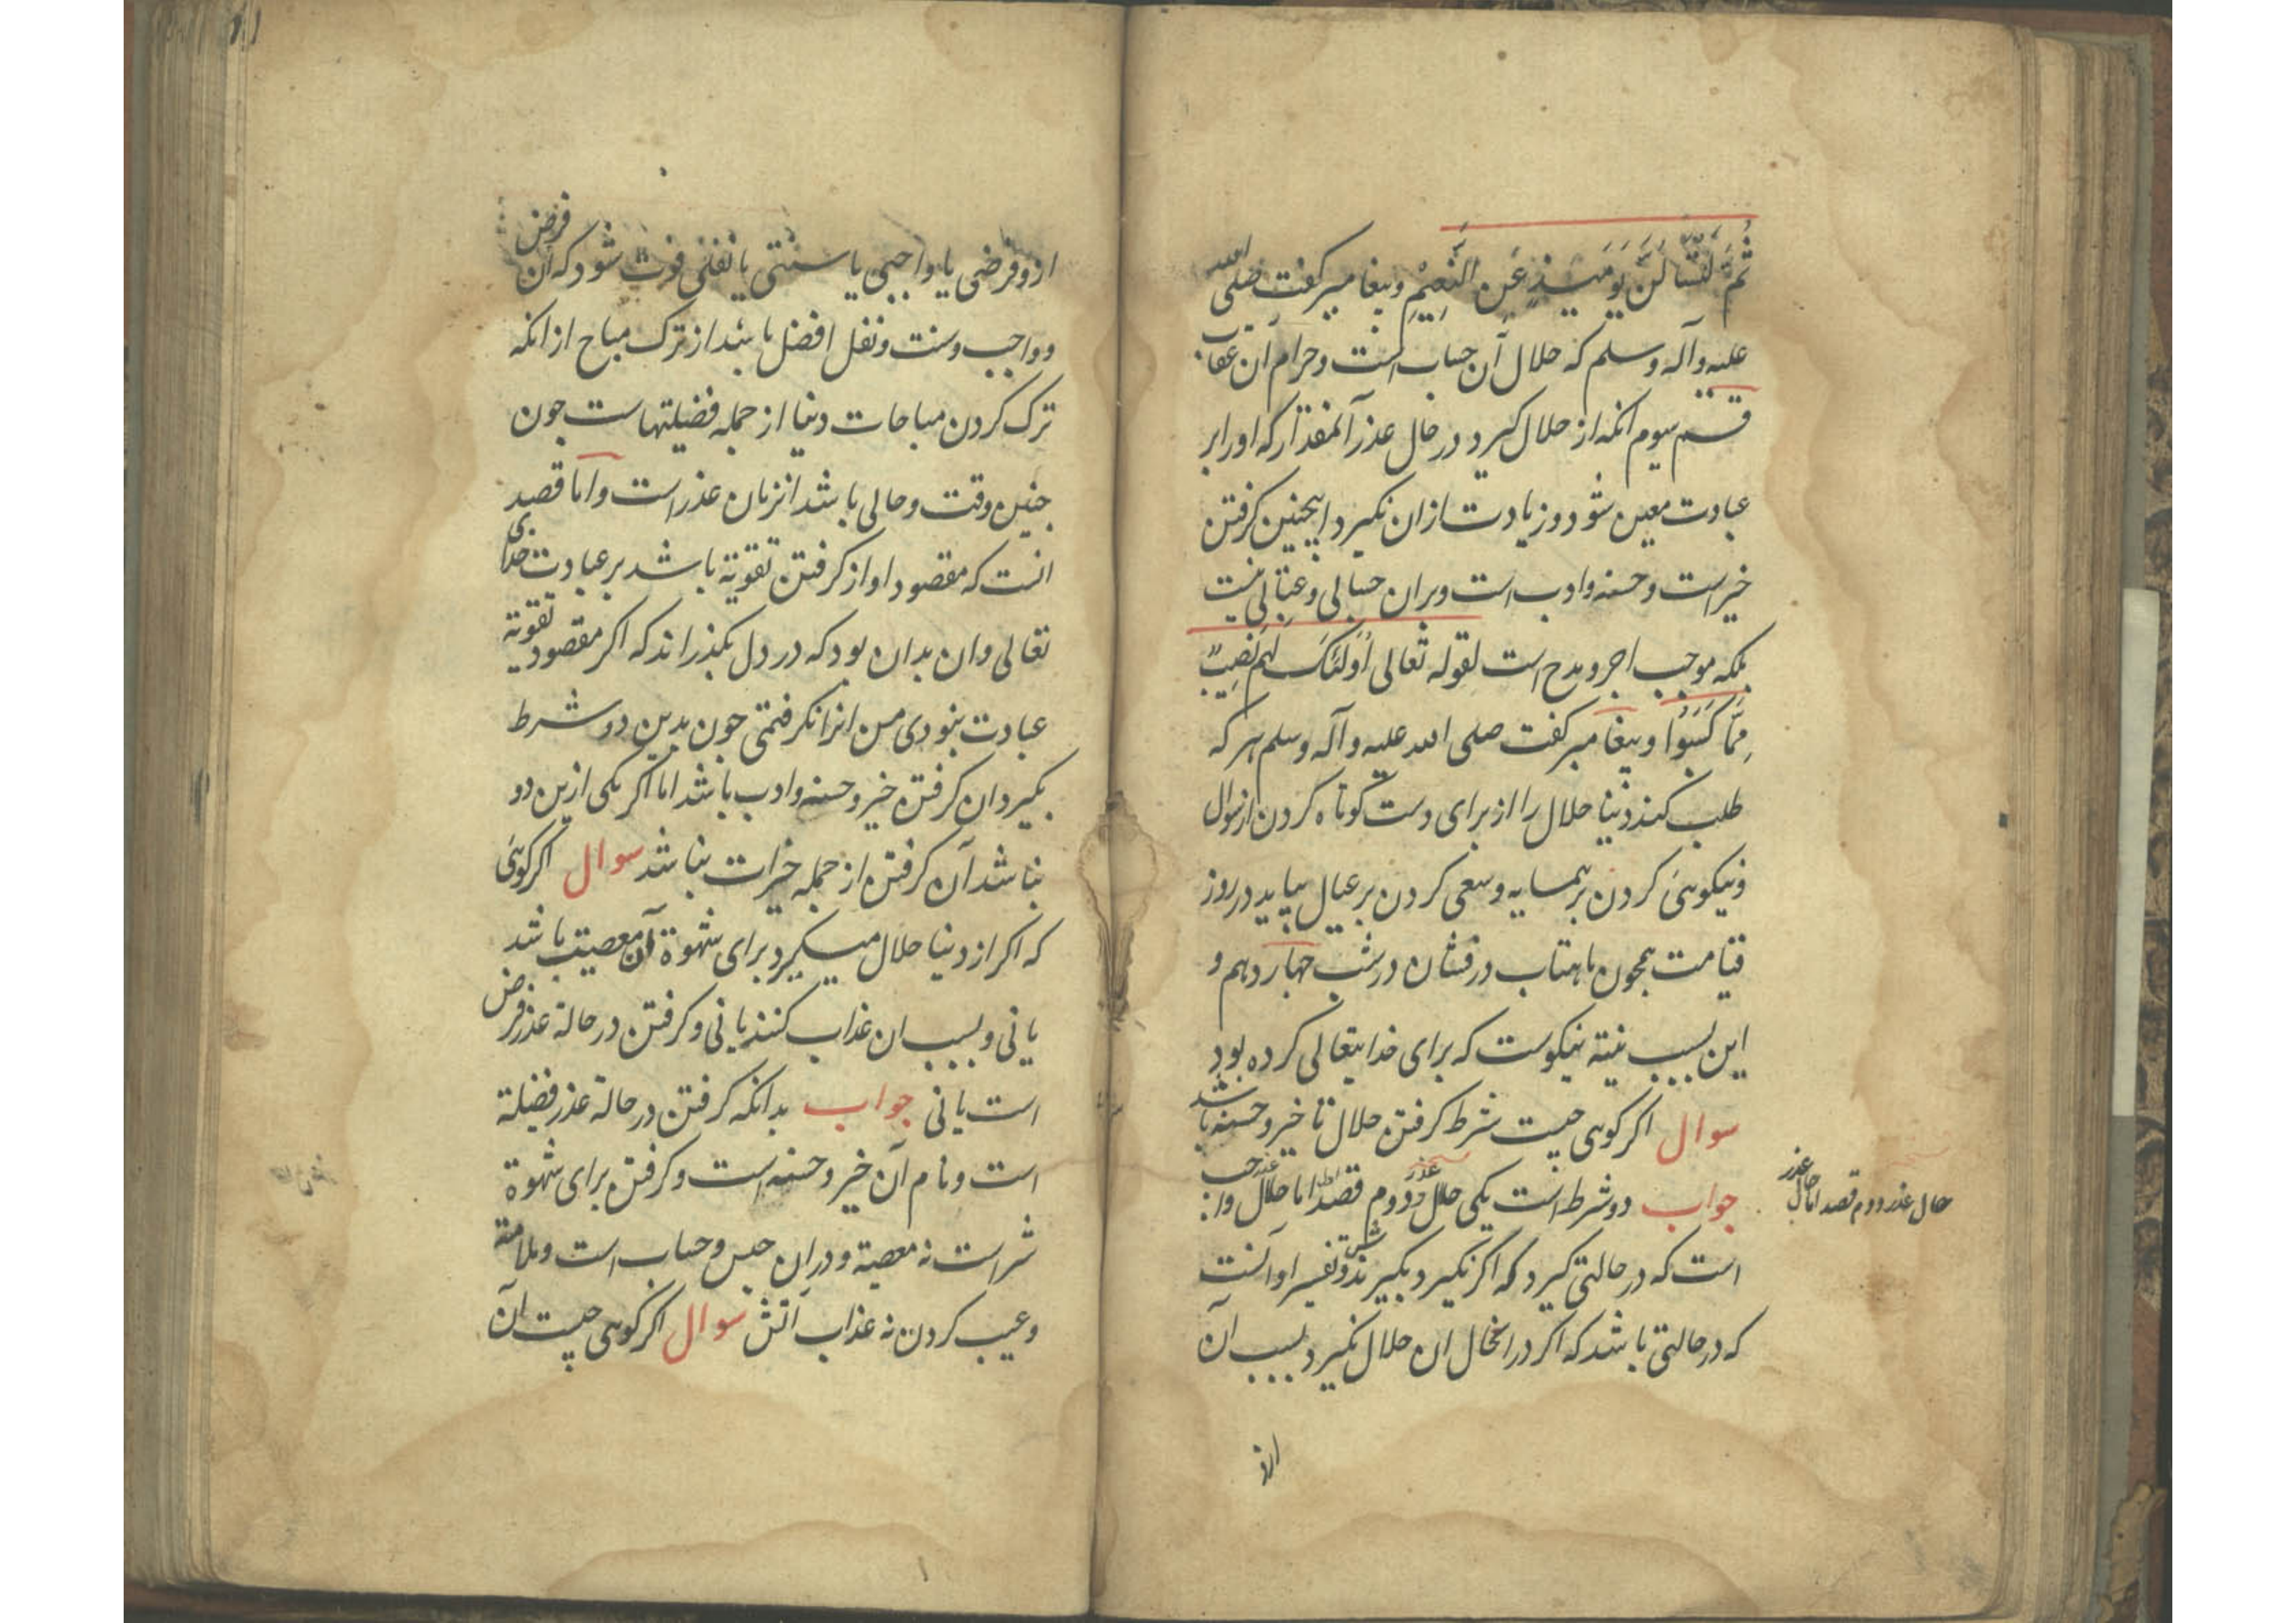 ثُمَّ لَتُسْأَلُنَّ يَوْمَئِذٍ عَنِ النَّعِيمِ وپیغامبر کفت صلی الله
علیه وآله وسلم که حلال آن حساب است وحرام آن عقاب
قسم سیوم آنکه از حلال کیرد در حال عذر آنمقدار که اورا بر
عبادت معین شود وزیادت ازان نکیرد اینچنین کرفتن
خیر است وحسنه وادب است وبران حسابی وعتابی نیست
بلکه موجب اجر ومدح است لقوله تعالی اُولَئِکَ لَهُمْ نَصِیبٌ
مِمَّا کَسَبُوا وپیغامبر کفت صلی الله علیه وآله وسلم هر که
طلب کند دنیا حلال را از برای دست کوتاه کردن از سوال
ونیکوئی کردن بر همسایه وسعی کردن بر عیال بیاید در روز
قیامت همچون ماهتاب درفشان در شب چهاردهم و
این بسبب نیته نیکوست که برای خدایتعالی کرده بود
سوال اکر کوهی چیست شرط کرفتن حلال تا خیر وحسنه باشد
جواب دو شرط است یکی حال عذر ودوم قصد اما حال عذر
حال عذر ودوم قصد اما حال عذر
است که در حالتی کیرد که اکر نکیرد
که در حالتی باشد که اکر در انحال ان حلال نکیرد بسبب آن
از
ازو فرضی یا واجبی یا سنتی یا نفلی فوت شود که آن فرض
وواجب وسنت ونفل افضل باشد از ترک مباح از انکه
ترک کردن مباحات دنیا از جمله فضیلتهاست جون
جنین وقت وحالی باشد انزمان عذر است واما قصد
انست که مقصود او از کرفتن تقویة باشد بر عبادت خدای
تعالی وان بدان بود که در دل بکذراند که اکر مقصود تقویة
عبادت نبودی من انرا نکرفتمی جون بدین دو شرط
بکیرد ان کرفتن خیر وحسنه وادب باشد اما اکر یکی ازین دو
نباشد آن کرفتن از جمله خیرات نباشد سوال اکر کوئی
که اکر از دنیا حلال میکیرد برای شهوة آن معصیت باشد
یا نی وبسبب ان عذاب کنند یا نی وکرفتن در حالة عذر فرض
است یا نی جواب بدانکه کرفتن در حالة عذر فضیلة
است ونام آن خیر وحسنه است وکرفتن برای شهوة
شر است نه معصیة ودران حبس وحساب است وملامة
وعیب کردن نه عذاب آتش سوال اکر کوهی چیست آن